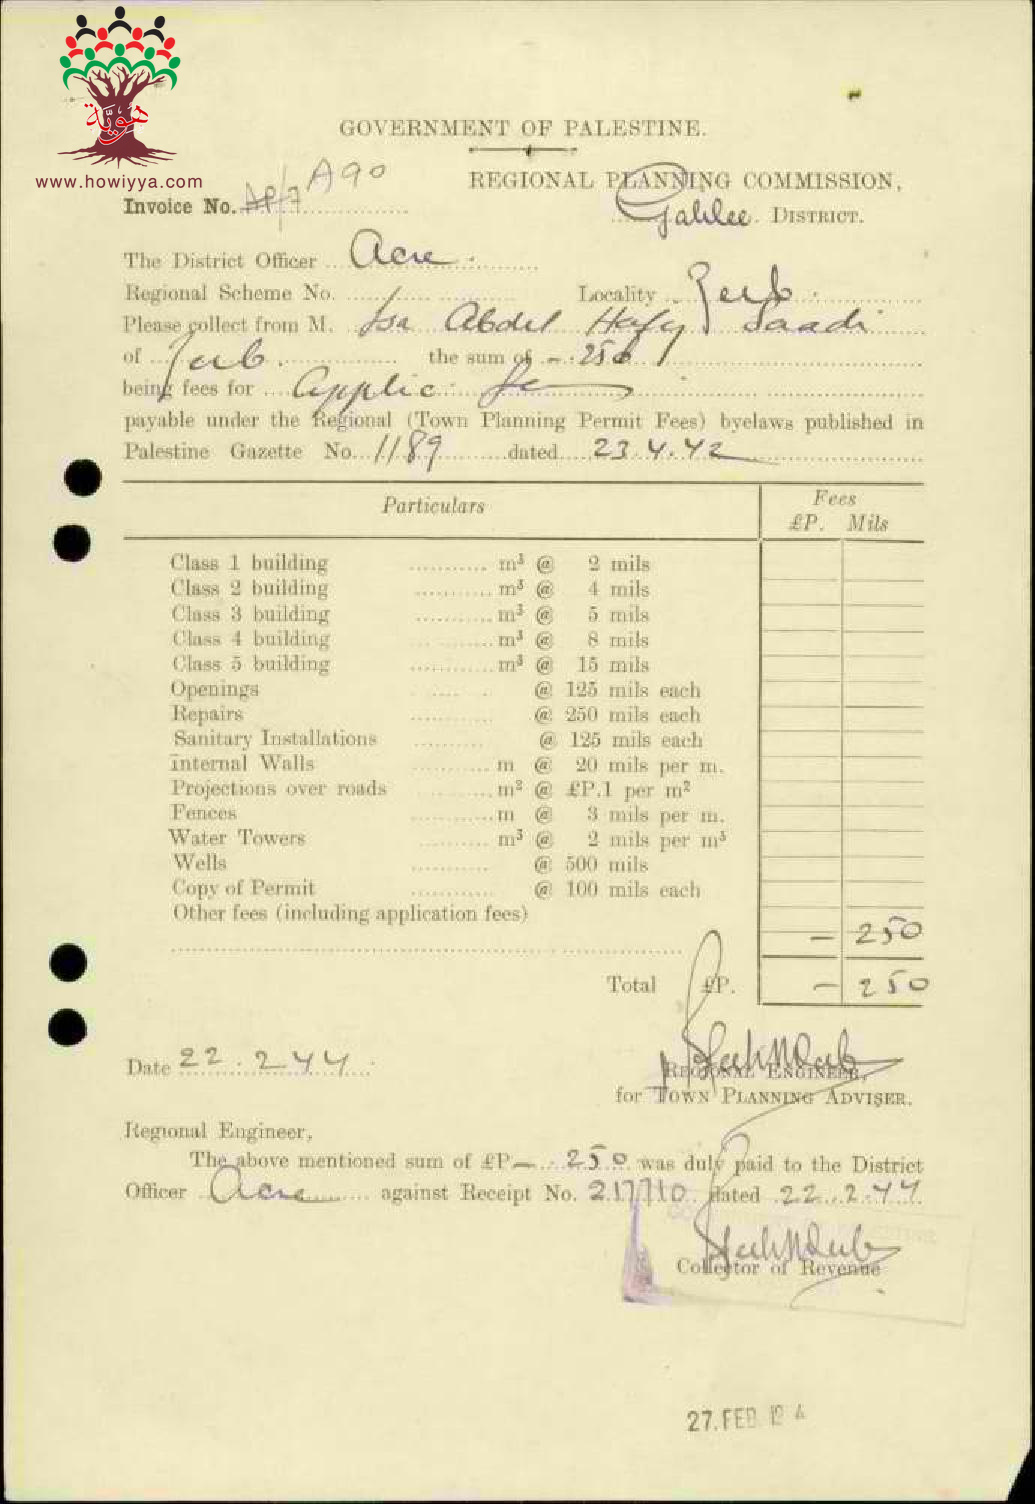 هويّة
www.howiyya.com
GOVERNMENT OF PALESTINE.
REGIONAL PLANNING COMMISSION,
Invoice No. A90
Galilee DISTRICT.
The District Officer Acre
Regional Scheme No. Locality Zeeb
Please collect from M. Isa Abdel Hafy Saadi
of Zeeb the sum of - 250
being fees for Applic. Fee
payable under the Regional (Town Planning Permit Fees) byelaws published in
Palestine Gazette No. 1189 dated 23.4.42
Particulars Fees
£P. Mils
Class 1 building m³ @ 2 mils
Class 2 building m³ @ 4 mils
Class 3 building m³ @ 5 mils
Class 4 building m³ @ 8 mils
Class 5 building m³ @ 15 mils
Openings @ 125 mils each
Repairs @ 250 mils each
Sanitary Installations @ 125 mils each
Internal Walls m @ 20 mils per m.
Projections over roads m² @ £P.1 per m²
Fences m @ 3 mils per m.
Water Towers m³ @ 2 mils per m³
Wells @ 500 mils
Copy of Permit @ 100 mils each
Other fees (including application fees)
- 250
Total £P. - 250
Date 22.2.44
REGIONAL ENGINEER,
for TOWN PLANNING ADVISER.
Regional Engineer,
The above mentioned sum of £P - 250 was duly paid to the District
Officer Acre against Receipt No. 217710 dated 22.2.44
Collector of Revenue
27. FEB. 194